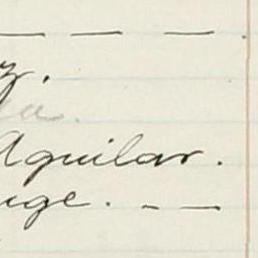 — — — .
z.
Aguilar.
uge. — —